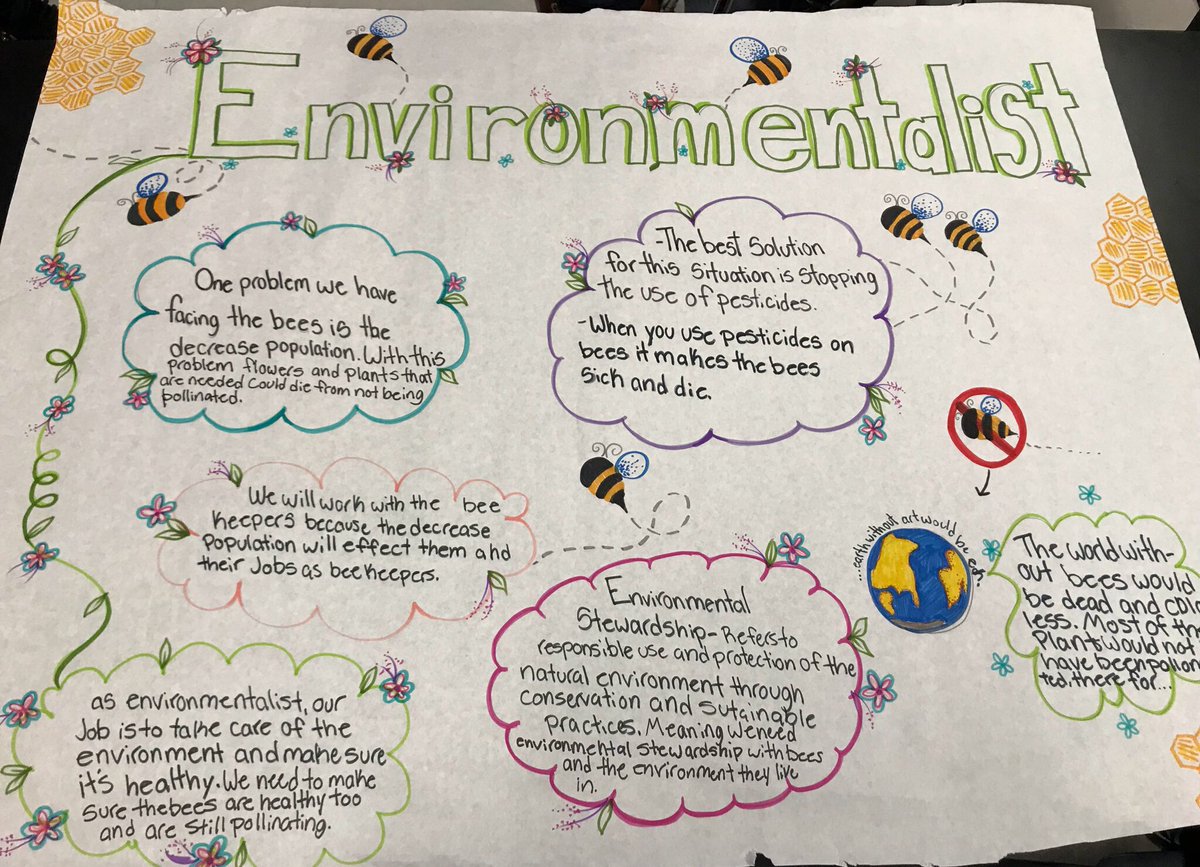 Environmentalist
One problem we have
facing the bees is the
decrease population. With this
problem flowers and plants that
are needed could die from not being
pollinated.
-The best solution
for this situation is stopping
the use of pesticides.
-When you use pesticides on
bees it makes the bees
sich and die.
We will work with the bee
keepers because the decrease
population will effect them and
their Jobs as beekeepers.
Environmental
Stewardship- Refers to
responsible use and protection of the
natural environment through
conservation and sutainable
practices. Meaning weneed
environmental stewardship with bees
and the environment they live
in.
...earth without art would be eh.
The world with-
out bees would
be dead and
less. Most of
Plants would not
have been
ted. there for...
as environmentalist, our
Job is to take care of the
environment and make sure
it's healthy. We need to make
sure the bees are healthy too
and are still pollinating.